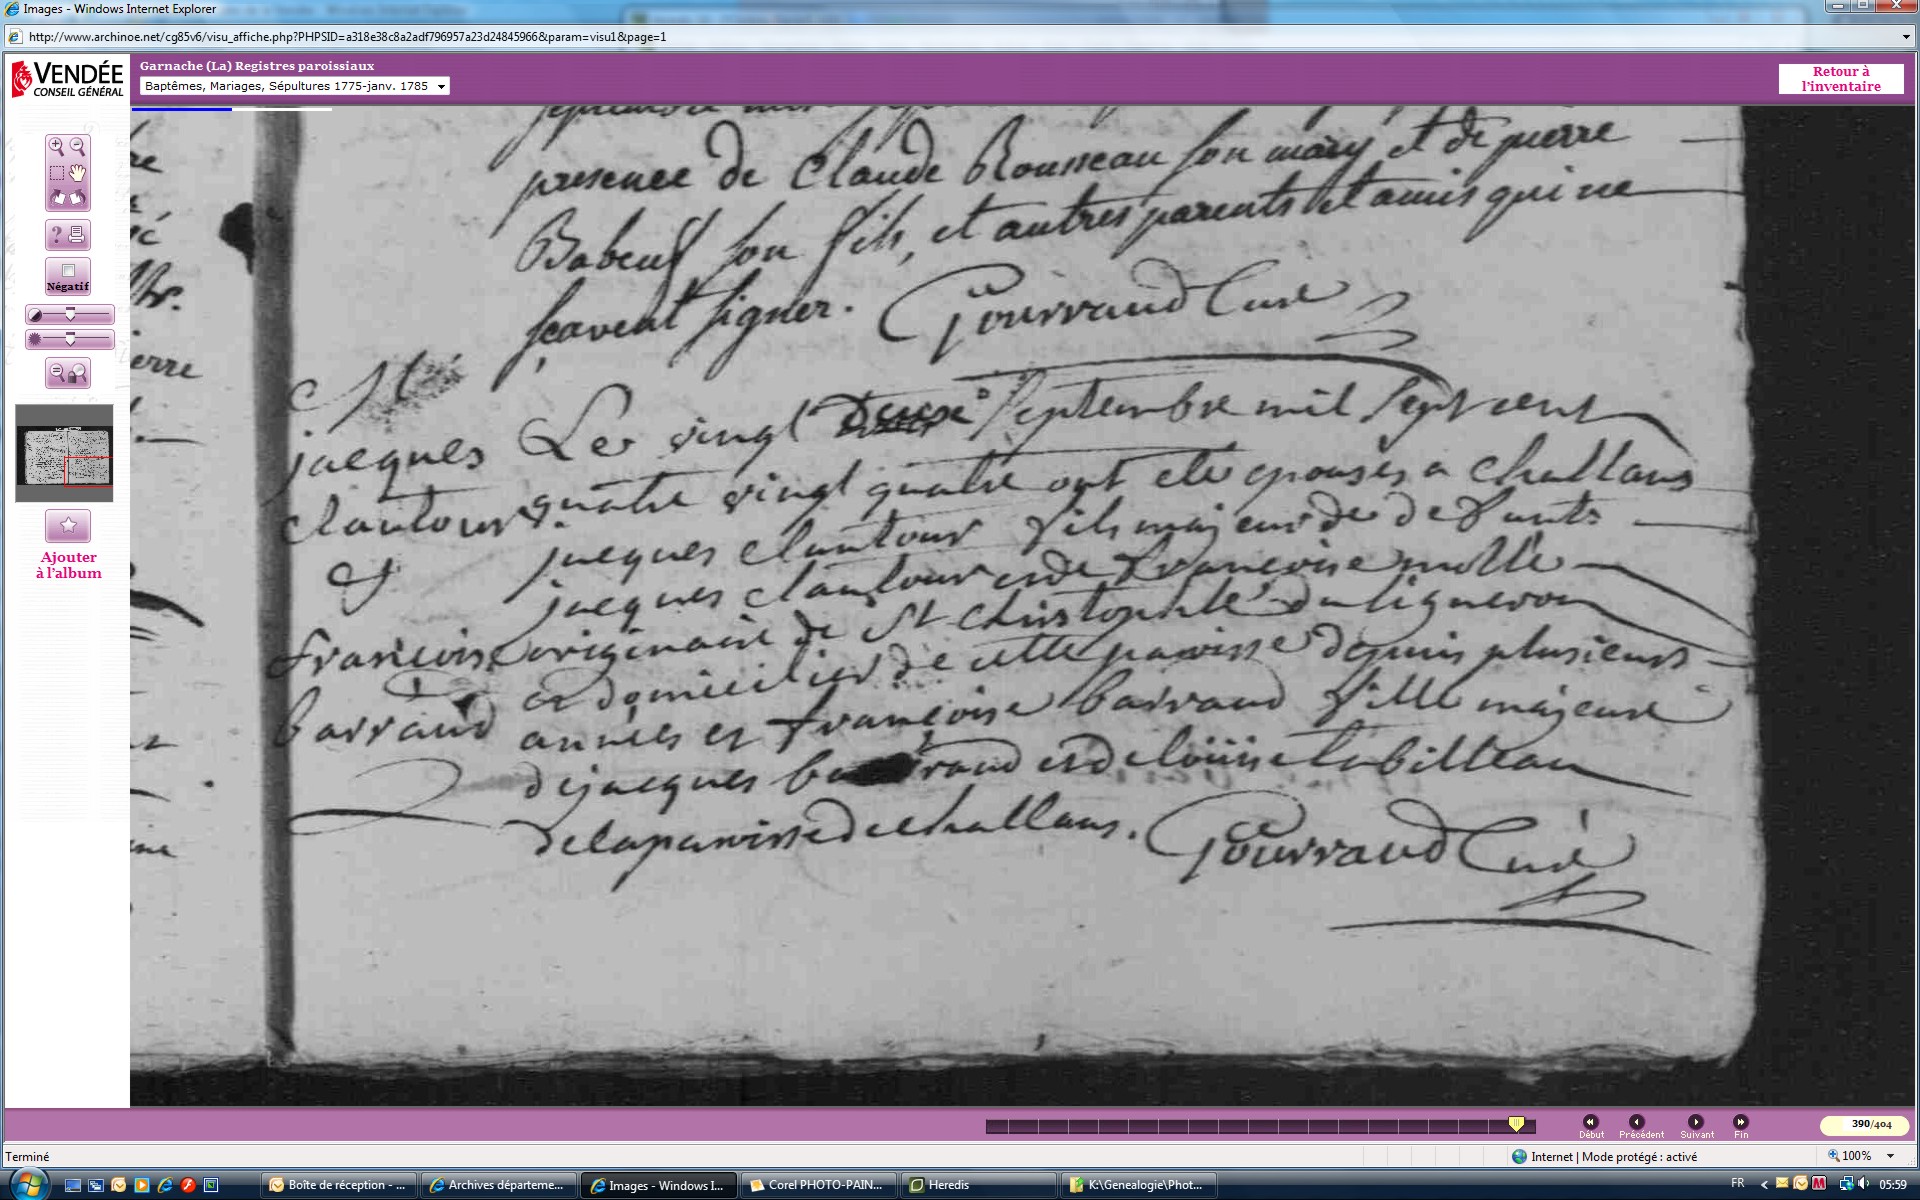 Images - Windows Internet Explorer
http://www.archinoe.net/cg85v6/visu_affiche.php?PHPSID=a318e38c8a2adf796957a23d24845966&param=visu1&page=1
VENDÉE
CONSEIL GÉNÉRAL
Garnache (La) Registres paroissiaux
Baptêmes, Mariages, Sépultures 1775-janv. 1785
Retour à
l'inventaire
Négatif
Ajouter
à l'album
erre
presence de Claude Rousseau son mary et de pierre
Babeuf son fils, et autres parents et amis qui ne
sçavent signer. Gourraud Curé
jacques
clautour
&
françoise
barraud
Le vingt septembre mil sept cent
quatre vingt quatre ont eté epousés a challans
jacques clautour fils majeur de defunts
jacques clautour et de françoise mollé
originaire de St christophe du ligneron
et domicilier de cette paroisse depuis plusieurs
années et françoise barraud fille majeure
de jacques barraud et de loüise tabilteau
de la paroisse de challans. Gourraud Curé
Début
Précédent
Suivant
Fin
390/404
Terminé
Internet | Mode protégé : activé
100%
Boîte de réception - ...
Archives départeme...
Images - Windows I...
Corel PHOTO-PAIN...
Heredis
K:\Genealogie\Phot...
FR
05:59